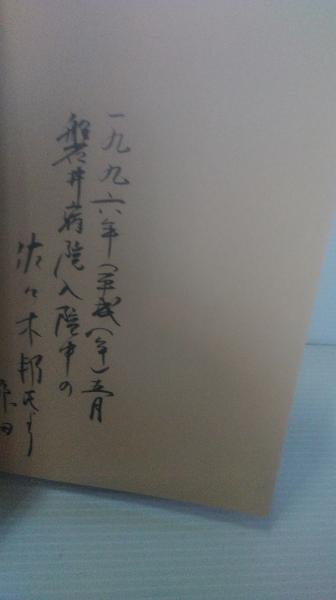 一九九六年(平成八年)五月
磐井病院入院中の
佐々木邦氏より